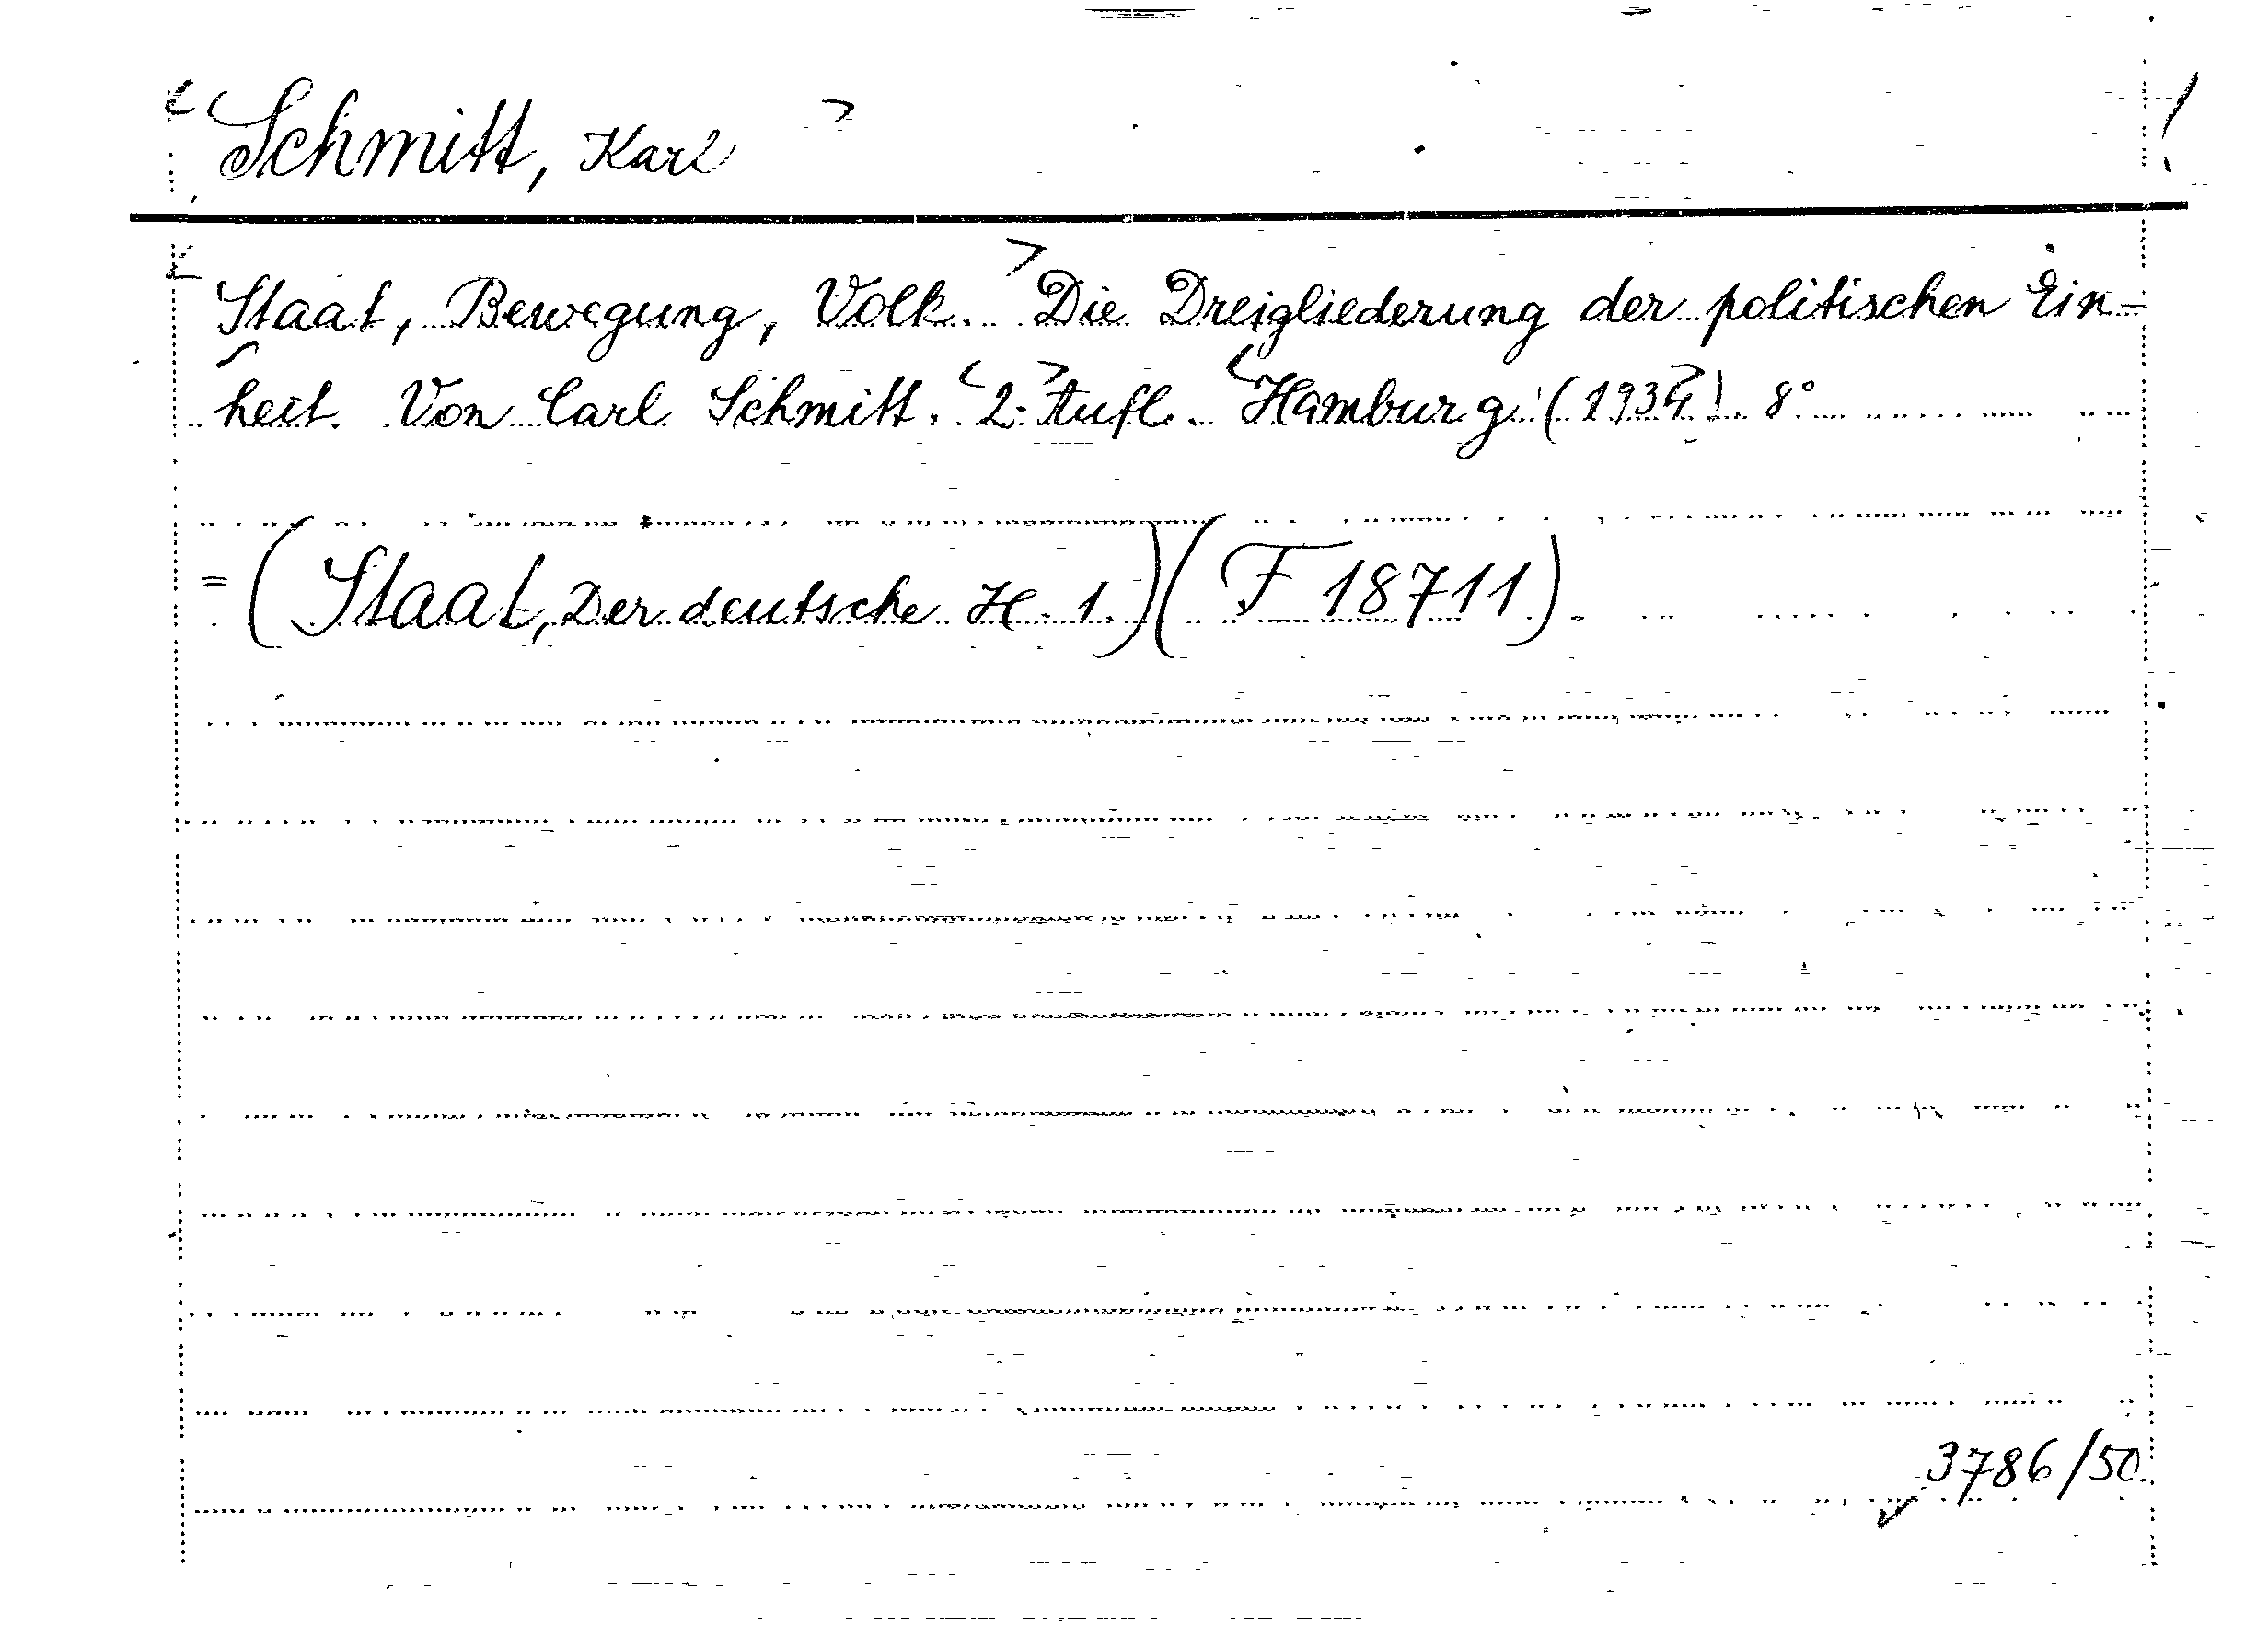 Schmitt, Karl
Staat, Bewegung, Volk. Die Dreigliederung der politischen Ein-
heit. Von Carl Schmitt. 2. Aufl. Hamburg (1934). 8°
= (Staat, Der deutsche H. 1.) (F 18711)
3786/50